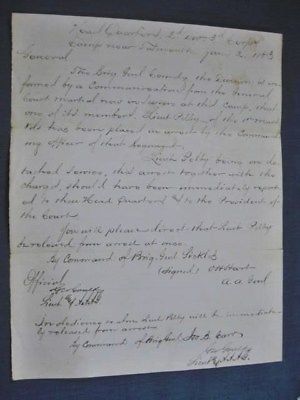 Head Quarters 2d Div 3d Corps
Camp near Falmouth Jany 2, 1863
General
The Brig Genl Comdg the Division is in-
formed by a Communication from the General
Court Martial now in session at this Camp, that
one of its members, Lieut Pelby, of the 1st Mass
Vols has been placed in arrest by the Command-
ing officer of that Regiment.
Lieut Pelby being on de-
tached service, this arrest together with the
charges, should have been immediately report-
ed to these Head Quarters & to the President of
the Court.
You will please direct that Lieut Pelby
be released from arrest at once.
By Command of Brig. Genl Sickles
(Signed) O H Hart
Official
A. A. Genl
Lieut & A.A.A.G.
In obedience to above Lieut Pelby will be immediate-
ly released from arrest
By Command of Brig Genl Jos. B. Carr
Lieut & A.A.A.G.